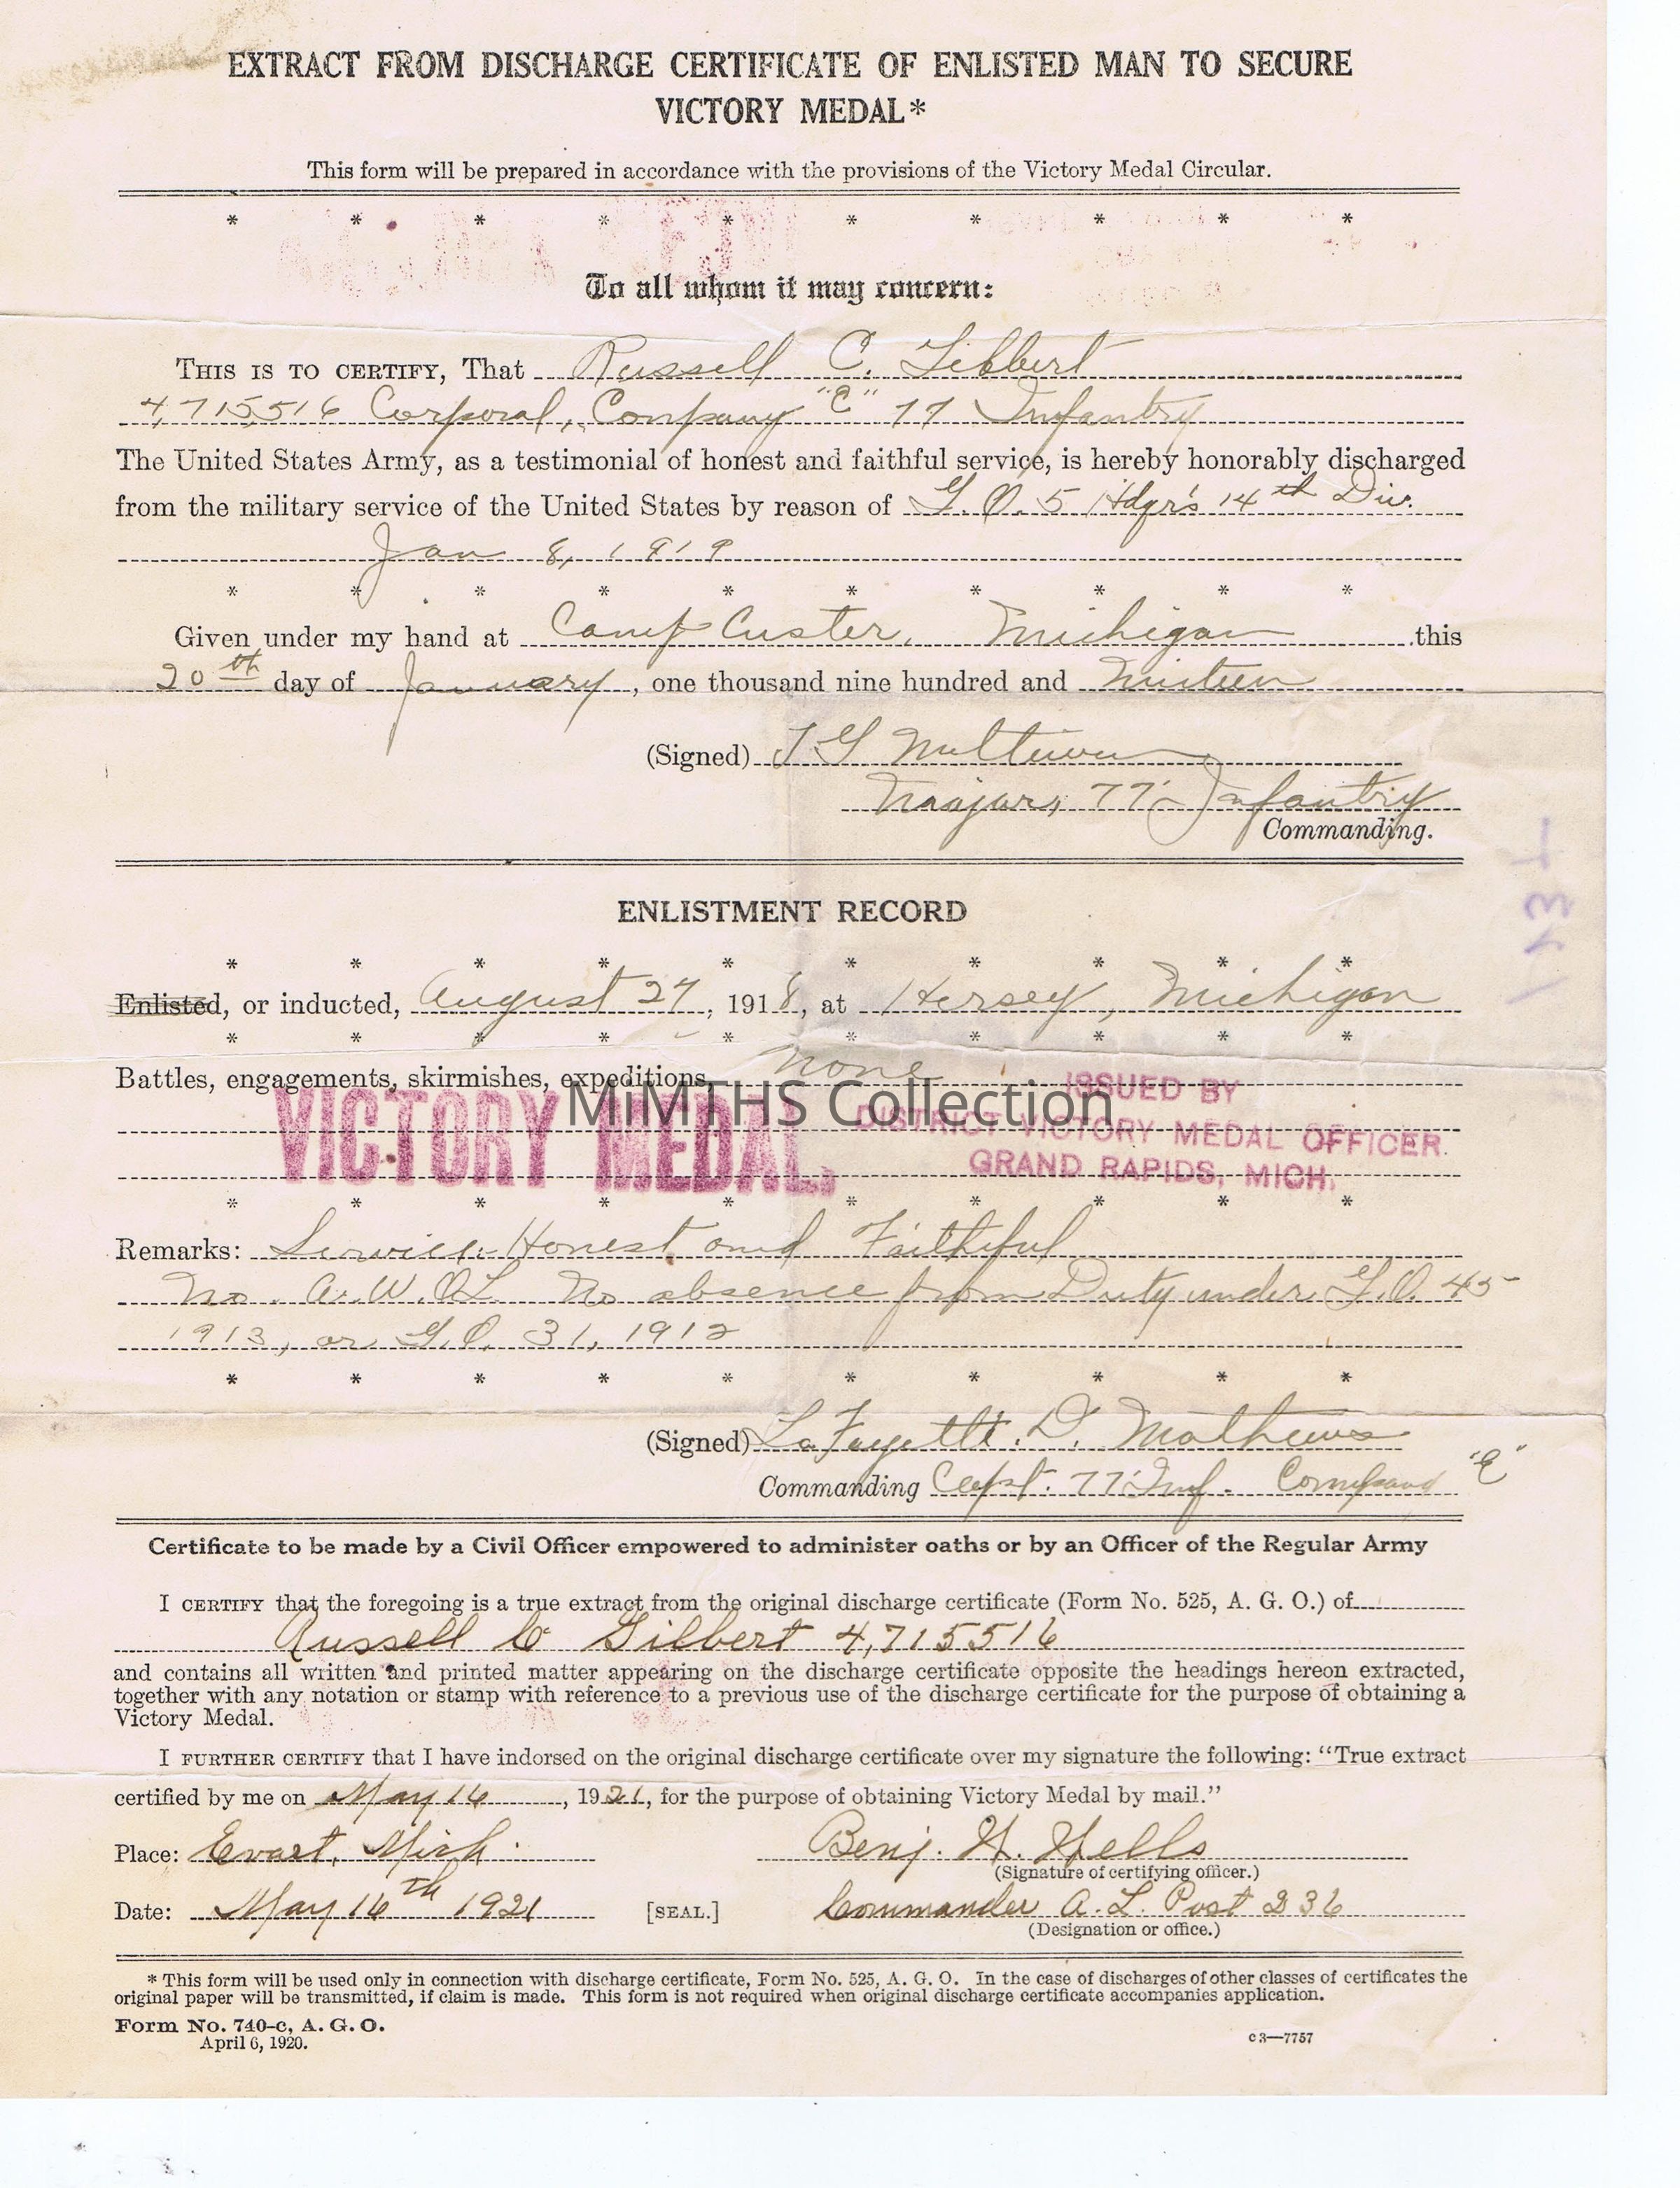 EXTRACT FROM DISCHARGE CERTIFICATE OF ENLISTED MAN TO SECURE
VICTORY MEDAL*
This form will be prepared in accordance with the provisions of the Victory Medal Circular.
* * * * * * * * * *
To all whom it may concern:
THIS IS TO CERTIFY, That Russell C. Gilbert
4,715,516 Corporal, Company "E" 77 Infantry
The United States Army, as a testimonial of honest and faithful service, is hereby honorably discharged
from the military service of the United States by reason of G. O. 5 Hdqr's 14th Div.
Jan 8, 1919
* * * * * * * * * *
Given under my hand at Camp Custer, Michigan this
20th day of January, one thousand nine hundred and Nineteen
(Signed) T G
Major, 77 Infantry
Commanding.
ENLISTMENT RECORD
* * * * * * * * * *
Enlisted, or inducted, August 27, 1918, at Hersey, Michigan
* * * * * * * * * *
Battles, engagements, skirmishes, expeditions, none
ISSUED BY
MiMTHS Collection
VICTORY MEDAL. DISTRICT VICTORY MEDAL OFFICER.
GRAND RAPIDS, MICH.
* * * * * * * * * *
Remarks: Service: Honest and Faithful
No. A.W.O.L. No absence from Duty under G.O. 45
1913, or G.O. 31, 1912
* * * * * * * * * *
(Signed) LaFayette. D. Mathews
Commanding Capt. 77 Inf. Company "E"
Certificate to be made by a Civil Officer empowered to administer oaths or by an Officer of the Regular Army
I CERTIFY that the foregoing is a true extract from the original discharge certificate (Form No. 525, A. G. O.) of
Russell C Gilbert 4,715516
and contains all written and printed matter appearing on the discharge certificate opposite the headings hereon extracted,
together with any notation or stamp with reference to a previous use of the discharge certificate for the purpose of obtaining a
Victory Medal.
I FURTHER CERTIFY that I have indorsed on the original discharge certificate over my signature the following: "True extract
certified by me on May 16, 1921, for the purpose of obtaining Victory Medal by mail."
Place: Evart, Mich. Benj. H. Hells
(Signature of certifying officer.)
Date: May 16th 1921 [SEAL.] Commander A. L. Post 236
(Designation or office.)
* This form will be used only in connection with discharge certificate, Form No. 525, A. G. O. In the case of discharges of other classes of certificates the
original paper will be transmitted, if claim is made. This form is not required when original discharge certificate accompanies application.
Form No. 740-c, A. G. O.
April 6, 1920.
c3—7757